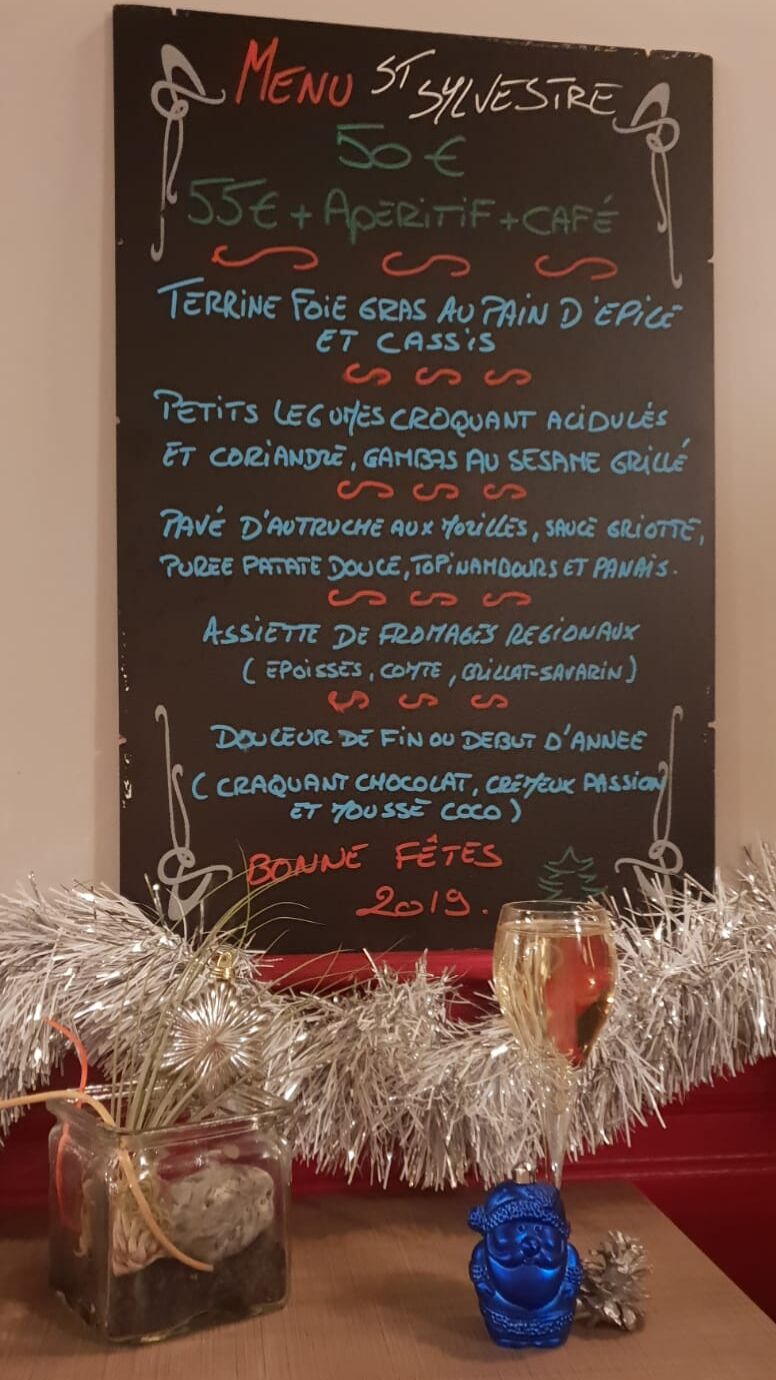 MENU ST SYLVESTRE
50 €
55€ + APERITIF + CAFÉ
TERRINE FOIE GRAS AU PAIN D'EPICE
ET CASSIS
PETITS LEGUMES CROQUANT ACIDULÉS
ET CORIANDRE, GAMBAS AU SESAME GRILLÉ
PAVÉ D'AUTRUCHE AUX MORILLES, SAUCE GRIOTTE,
PUREE PATATE DOUCE, TOPINAMBOURS ET PANAIS.
ASSIETTE DE FROMAGES REGIONAUX
( EPOISSES, COMTE, BRILLAT-SAVARIN )
DOUCEUR DE FIN OU DEBUT D'ANNEE
( CRAQUANT CHOCOLAT, CREMEUX PASSION
ET MOUSSE COCO )
BONNE FÊTES
2019.